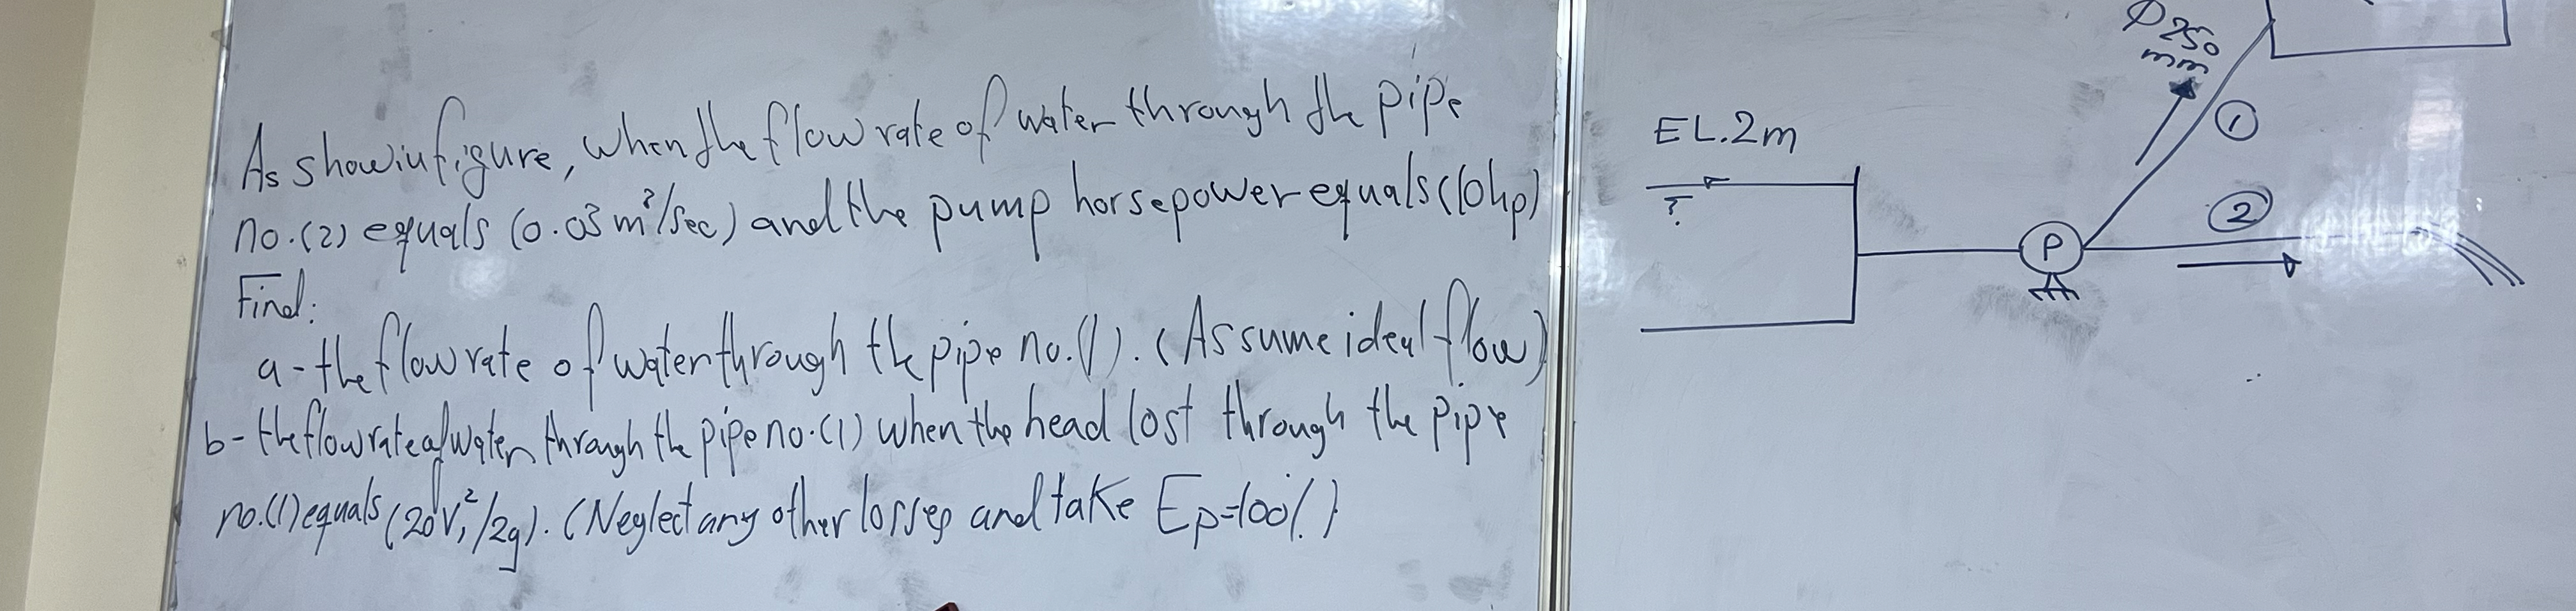 As show in figure, when the flow rate of water through the pipe
no.(2) equals (0.03 m³/sec) and the pump horsepower equals (10hp)
Find:
a- the flow rate of water through the pipe no.(1). (Assume ideal flow)
b- the flow rate of water through the pipe no.(1) when the head lost through the pipe
no.(1) equals (20V₁²/2g). (Neglect any other losses and take Ep=100%)
Ø250
mm
①
EL.2m
②
P